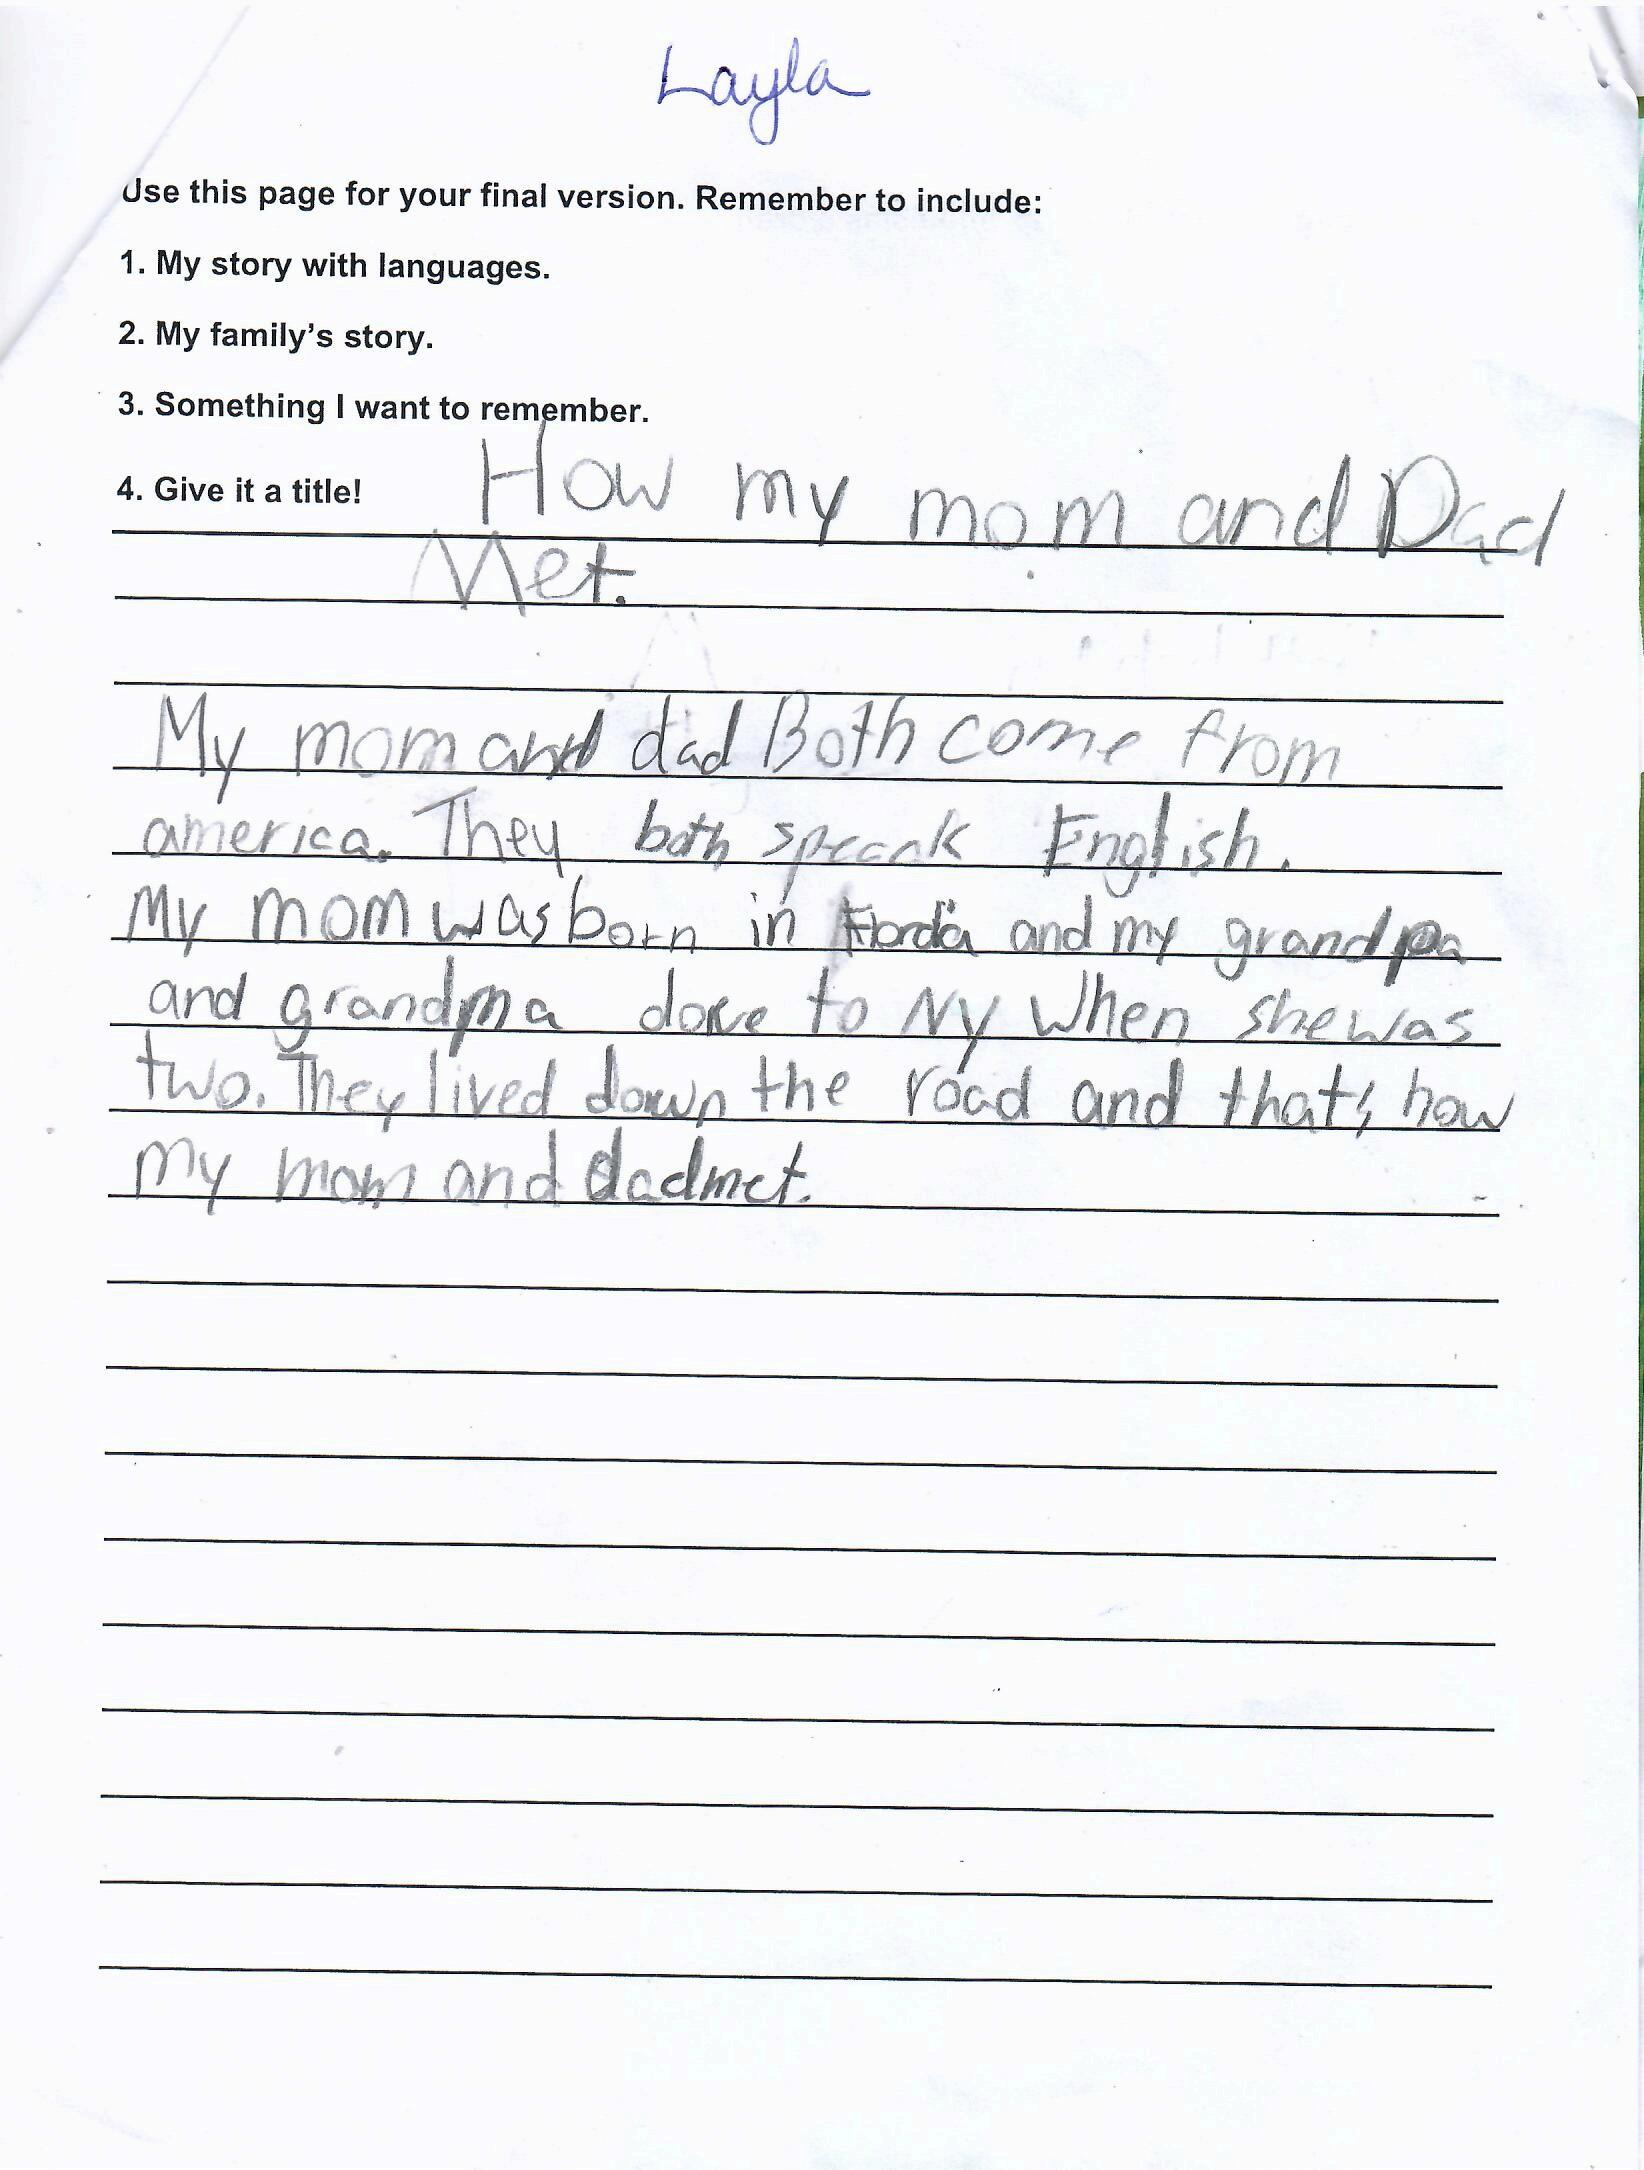 Layla
Use this page for your final version. Remember to include:
1. My story with languages.
2. My family's story.
3. Something I want to remember.
4. Give it a title!
How my mom and Dad
Met.
My mom and dad Both come from
america. They both speeak English.
My mom was born in Flordia and my grandpa
and grandma dove to Ny When she was
two. They lived down the road and that's how
my mom and dad met.